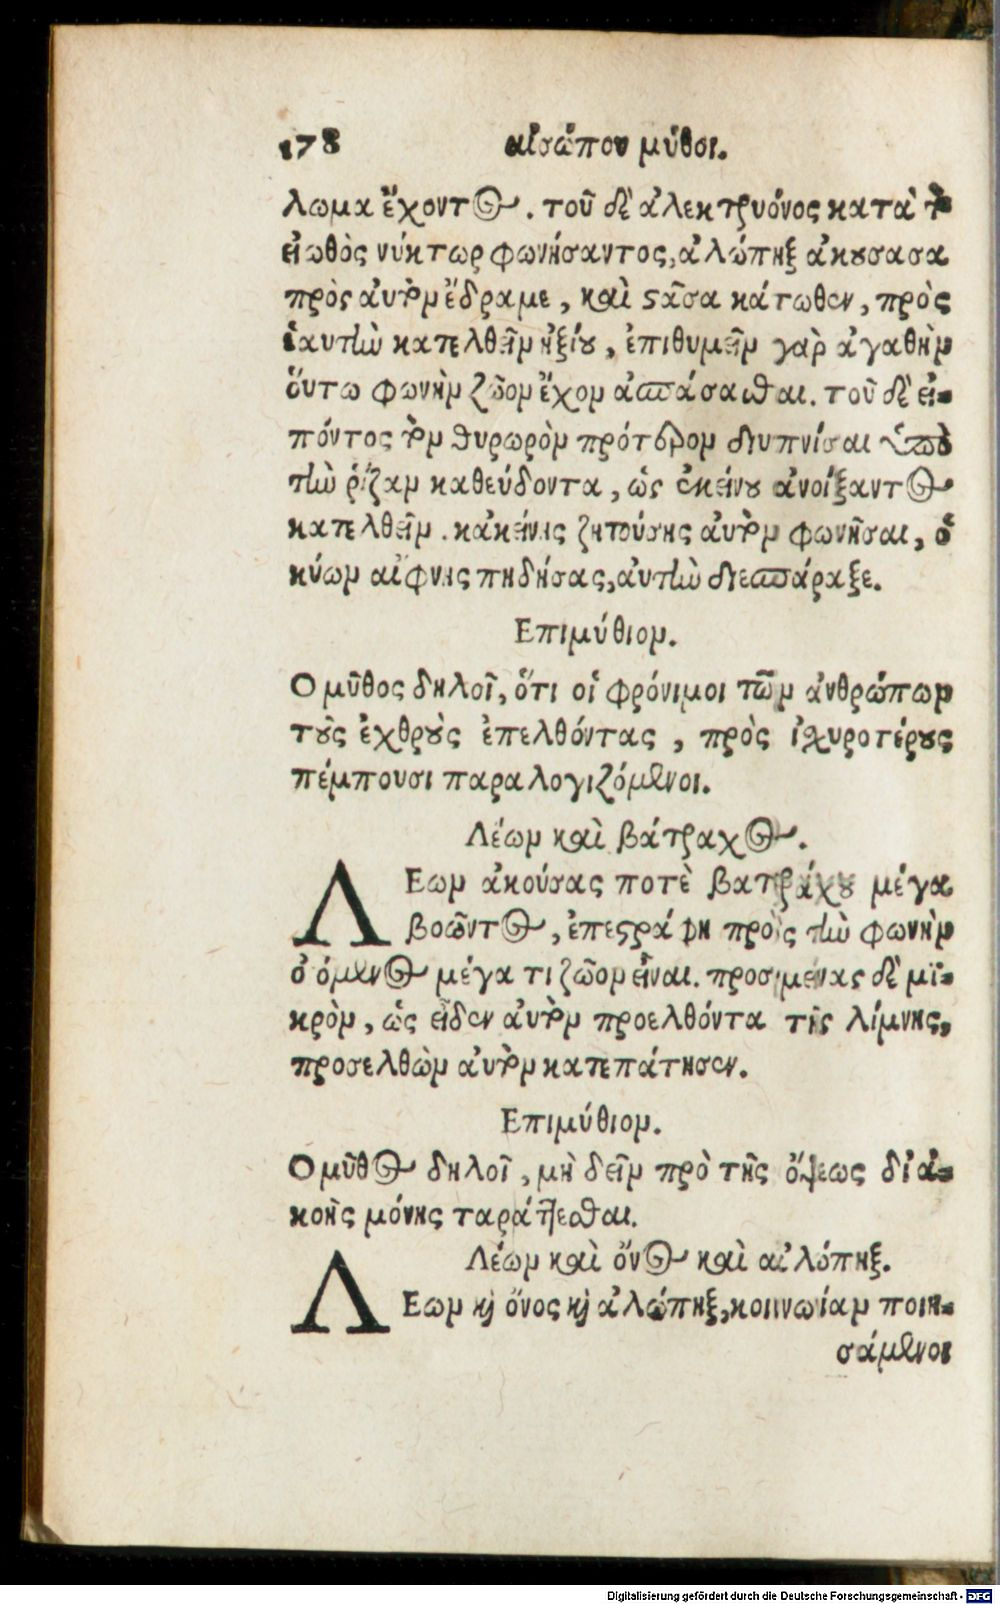 178 αἰσώπου μύθοι.
λωμα ἔχοντος. τοῦ δὲ ἀλεκτρυόνος κατὰ τὸ
εἰωθὸς νύκτωρ φωνήσαντος, ἀλώπηξ ἀκούσασα
πρὸς ἀυτὸν ἔδραμε, καὶ στᾶσα κάτωθεν, πρὸς
ἑαυτὴν κατελθεῖν ἠξίου, ἐπιθυμεῖν γὰρ ἀγαθὴν
ὅυτω φωνὴν ζῶον ἔχον ἀσπάσασθαι. τοῦ δὲ εἰ-
πόντος τὸν θυρωρὸν πρότερον διυπνίσαι ὑπὸ
τὴν ῥίζαν καθεύδοντα, ὡς ἐκείνου ἀνοίξαντος
κατελθεῖν. κἀκείνης ζητούσης ἀυτὸν φωνῆσαι, ὁ
κύων αἴφνης πηδήσας, ἀυτὴν διεσπάραξε.
Επιμύθιον.
Ο μῦθος δηλοῖ, ὅτι οἱ φρόνιμοι τῶν ἀνθρώπων
τοὺς ἐχθροὺς ἐπελθόντας, πρὸς ἰσχυροτέρους
πέμπουσι παραλογιζόμενοι.
Λέων καὶ βάτραχος.
ΛΕων ἀκούσας ποτὲ βατράχου μέγα
βοῶντος, ἐπεστράφη πρὸς τὴν φωνὴν
ὀιόμενος μέγα τι ζῶον εἶναι. προσμείνας δὲ μι-
κρὸν, ὡς εἶδεν ἀυτὸν προελθόντα τῆς λίμνης,
προσελθὼν ἀυτὸν κατεπάτησεν.
Επιμύθιον.
Ο μῦθος δηλοῖ, μὴ δεῖν πρὸ τῆς ὄψεως δι' ἀ-
κοῆς μόνης ταράττεσθαι.
Λέων καὶ ὄνος καὶ ἀλώπηξ.
ΛΕων καὶ ὄνος καὶ ἀλώπηξ, κοινωνίαν ποιη-
σάμενοι
Digitalisierung gefördert durch die Deutsche Forschungsgemeinschaft - DFG